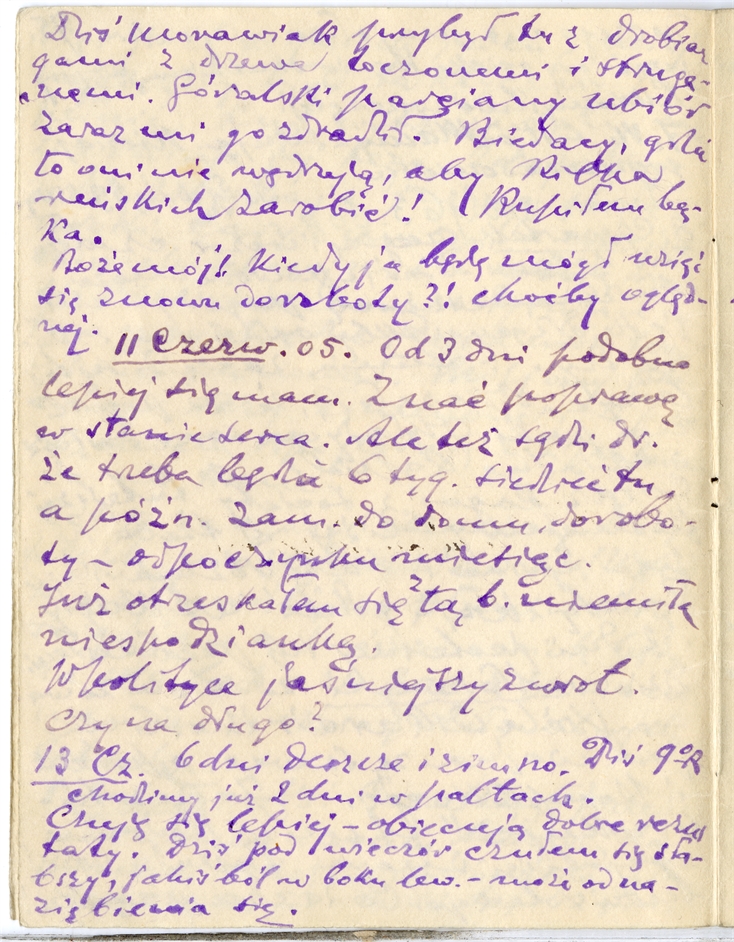 Dziś Morawiak przybył tu z drobiaz
gami z drzewa toczonemi i struga-
nemi. Góralski parciany ubiór
zaraz mi go zdradził. Biedacy, gdzie
to oni nie wędrują, aby kilka
reńskich zarobić! (Kupiłem bą-
ka.
Boże mój! Kiedy ja będę mógł wziąć
się znowu do roboty?! choćby oględ-
nej.
11 Czerw. 05. Od 3 dni podobno
lepiej się mam. Znać poprawę
w stanie serca. Ale też sądzi dr.
że trzeba będzie 6 tyg. siedzieć tu
a późn. zam. do domu, do robo-
ty – odpoczynku miesiąc.
Już otrzaskałem się z tą b. niemiłą
niespodzianką.
W polityce jaśniejszy zwrot.
Czy na długo?
13 Cz. 6 dni deszcze i zimno. Dziś 9°R
chodzimy już 2 dni w paltach.
Czuję się lepiej – obiecują dobre rezul
taty. Dziś pod wieczór czułem się sła-
bszy, jakiś ból w boku lew. – może od na-
ziębienia się.